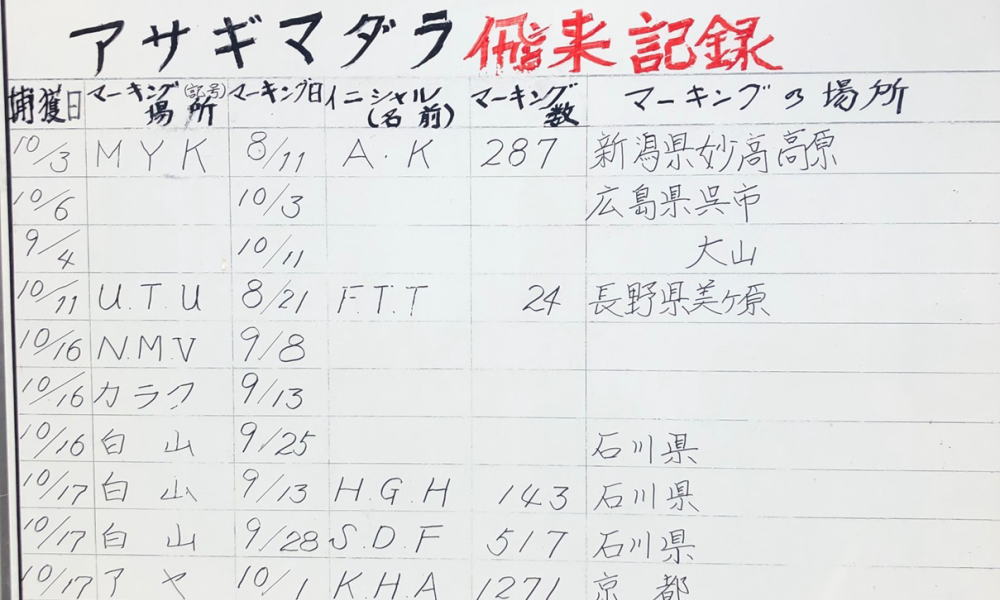 アサギマダラ飛来記録
捕獲日 マーキング場所(記号) マーキング日 イニシャル(名前) マーキング数 マーキングの場所
10/3 MYK 8/11 A.K 287 新潟県妙高高原
10/6 10/3 広島県呉市
9/4 10/11 大山
10/11 U.T.U 8/21 F.T.T 24 長野県美ヶ原
10/16 N.M.V 9/8
10/16 カラク 9/13
10/16 白山 9/25 石川県
10/17 白山 9/13 H.G.H 143 石川県
10/17 白山 9/28 S.D.F 517 石川県
10/17 アヤ 10/1 K.H.A 1271 京都